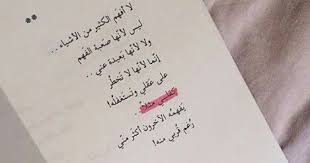 لا أفهم الكثير من الأشياء..
ليس لأنها صعبة الفهم
ولا لأنها بعيدة عني..
إنما لأنها لا تخطر
على عقلي وتستغفله!
كنفسي مثلا..
يفهمه الآخرون أكثر مني
رغم قربي منه!